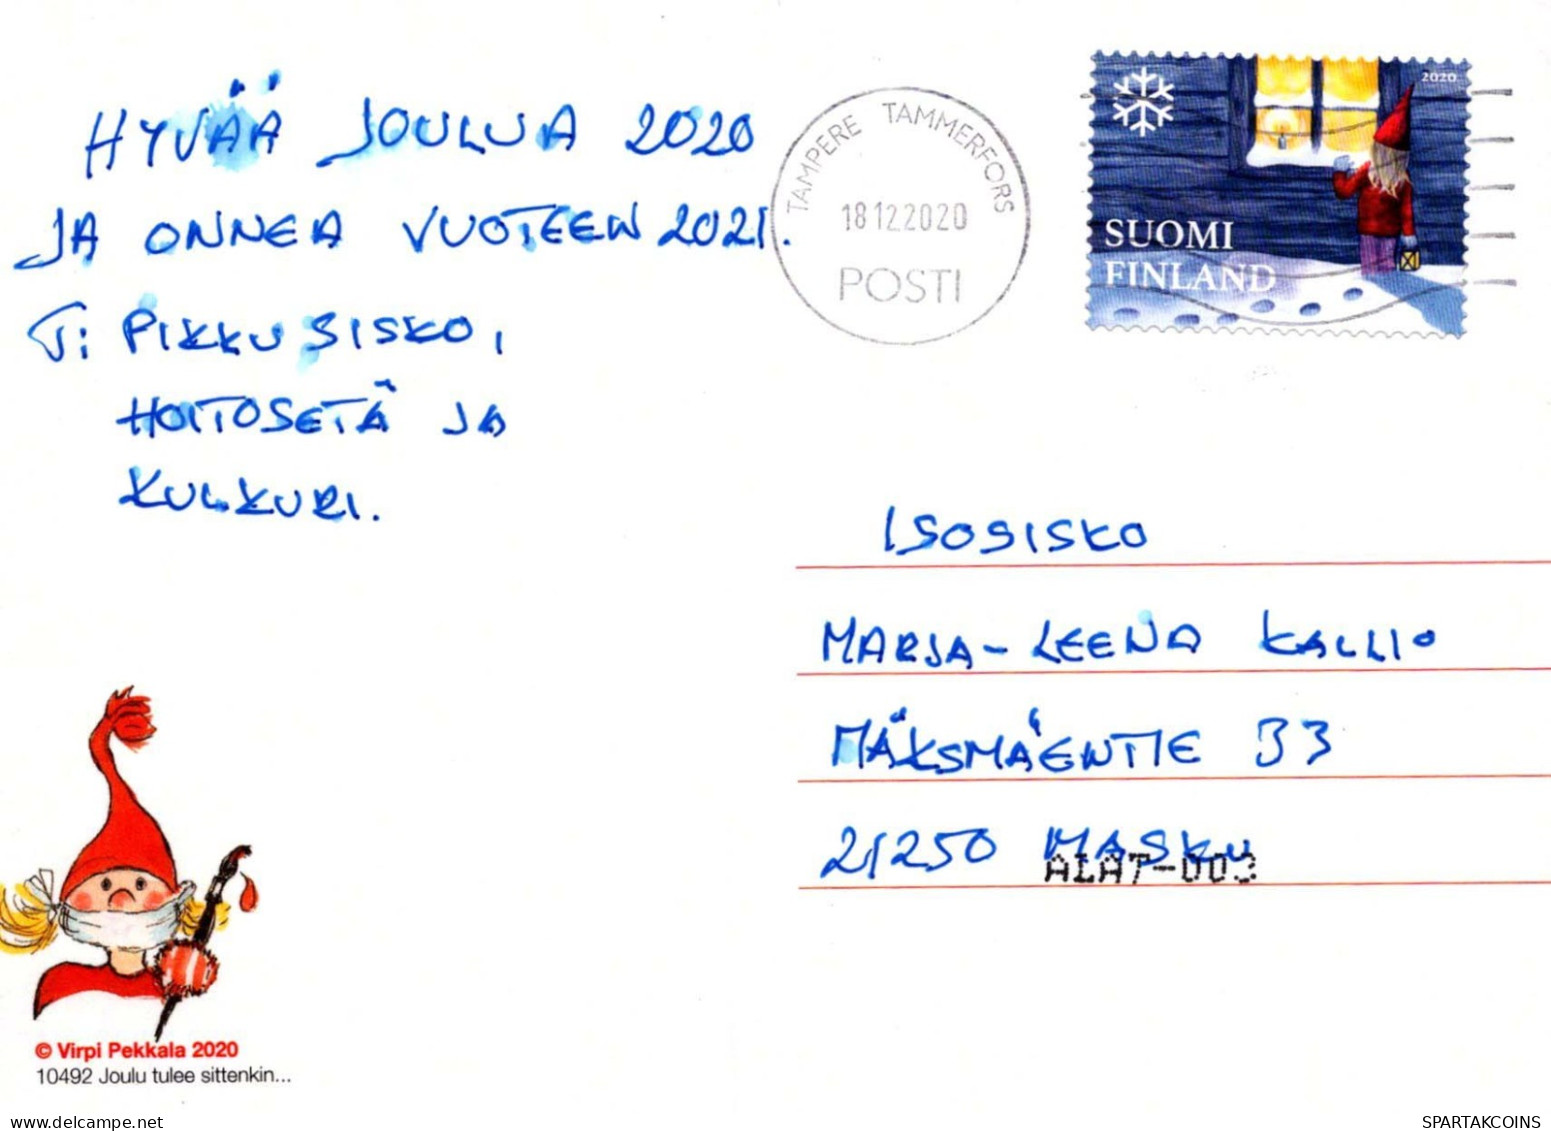 HYVÄÄ JOULUA 2020
JA ONNEA VUOTEEN 2021.
T: PIKKUSISKO,
HOITOSETÄ JA
KULKURI.
TAMPERE TAMMERFORS
18122020
POSTI
2020
SUOMI
FINLAND
ISOSISKO
MARJA-LEENA KALLIO
MÄKSMÄENTIE 33
21250 MASKU
ALAT-003
© Virpi Pekkala 2020
10492 Joulu tulee sittenkin...
SPARTAKCOINS.COM